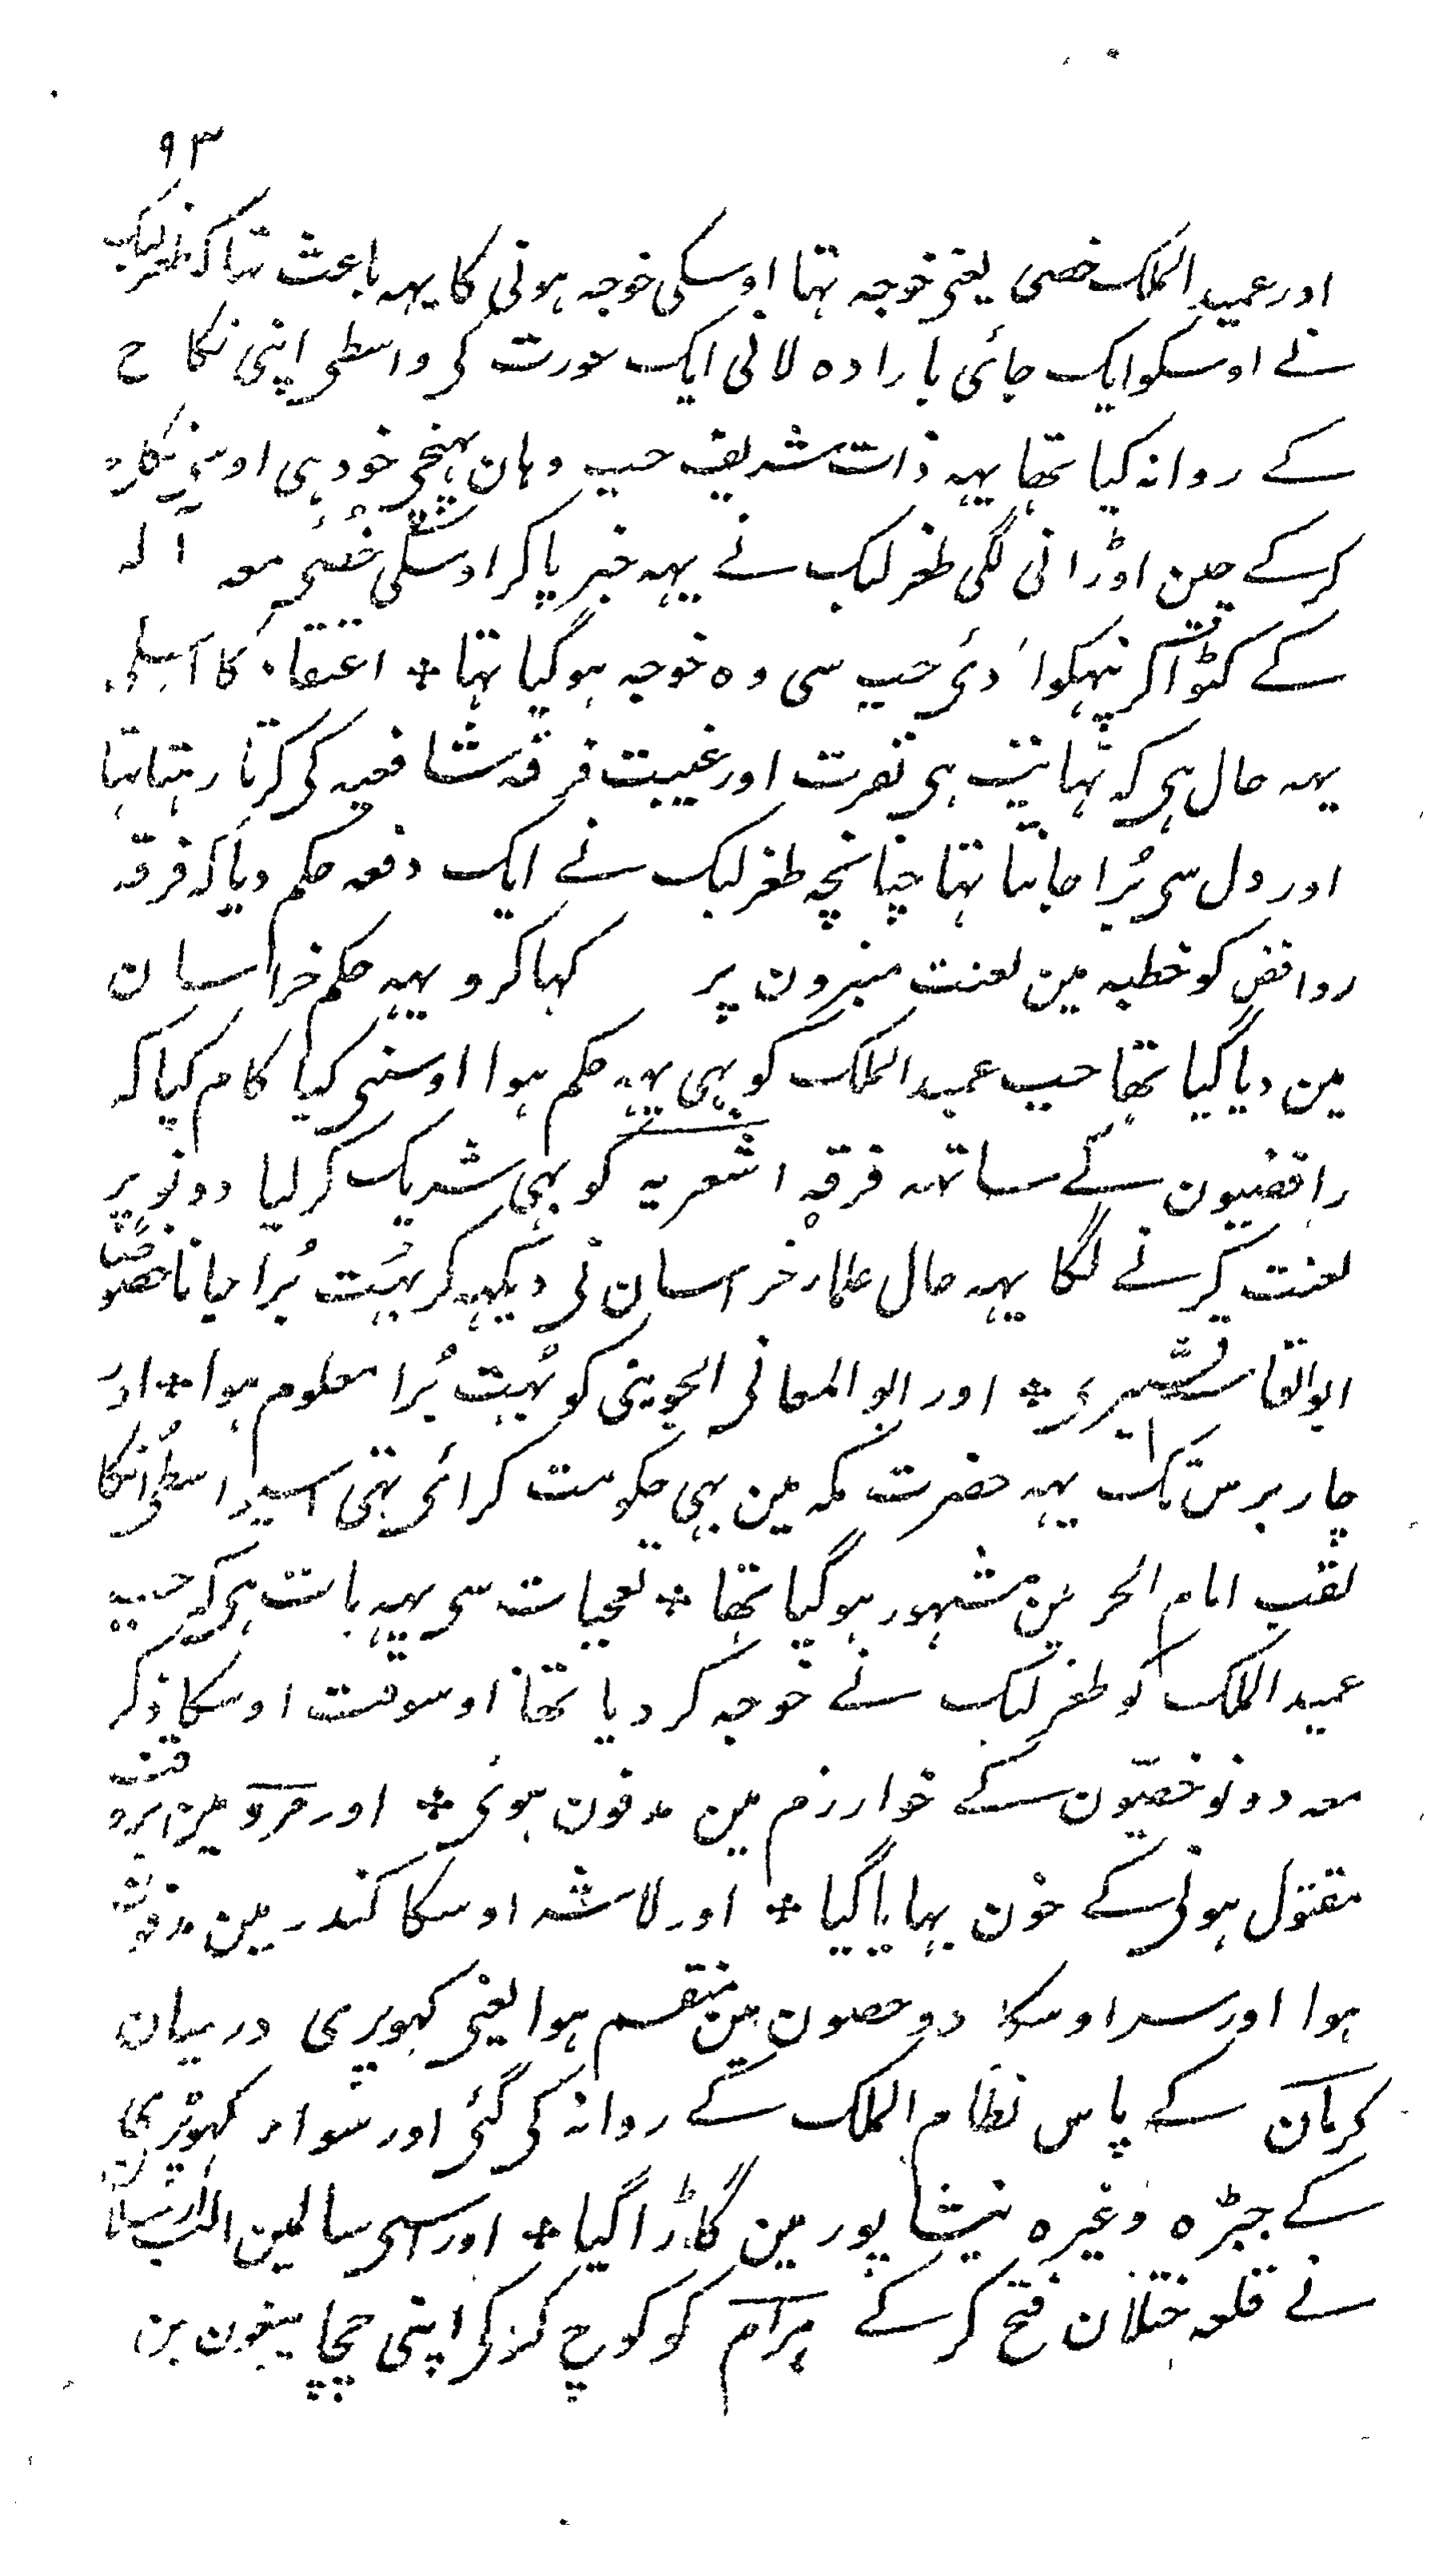 ۹۳
اور عمید الملک خصی یعنی خوجہ تہا اوسکی خوجہ ہونی کا یہہ باعث تہا کہ طغرلبک
نے اوسکو ایک جائی بارادہ لانی ایک عورت کی واسطی اپنی نکاح
کے روانہ کیا تھا یہہ ذات شریف جب وہان پہنچی خود ہی اوس نکاح
کرکے چین اوڑانی لگی طغرلبک نے یہہ خبر پاکر اوسکی خصئی معہ آلہ
کے کٹوا کر پہنکوا دئی جب سی وہ خوجہ ہوگیا تہا ÷ اعتقاد کا
یہہ حال ہی کہ نہایت ہی نفرت اور غیبت فرقہ شافعیہ کی کرتا رہتا تہا
اور دل سی بُرا جانتا تہا چنانچہ طغرلبک نے ایک دفعہ حکم دیا کہ فرقہ
روافض کو خطبہ مین لعنت منبرون پر کہا کرو یہہ حکم خراسان
مین دیا گیا تھا جب عمید الملک کو بہی یہہ حکم ہوا اوسنی کیا کام کیا کہ
رافضیون کے ساتہہ فرقہ اشعریہ کو بہی شریک کر لیا دونو پر
لعنت کرنے لگا یہہ حال علماء خراسان نی دیکہہ کر بہت بُرا جانا خصوصًا
ابو القاسم قشیری ÷ اور ابو المعالی الجوینی کو بہت بُرا معلوم ہوا ÷ اور
چار برس تک یہہ حضرت مکہ مین بہی حکومت کرائی تہی اسیواسطی اُنکا
لقب امام الحرمین مشہور ہوگیا تھا ÷ تعجبات سی یہہ بات ہی کہ جب
عمید الملک کو طغرلبک نے خوجہ کر دیا تھا اوسوقت اوسکا ذکر
معہ دونو خصیّون کے خوارزم مین مدفون ہوئی ÷ اور مرو مین بروقت
مقتول ہونی کے خون بہایا گیا ÷ اور لاشہ اوسکا کندر مین مدفون
ہوا اور سر اوسکا دو حصون مین منقسم ہوا یعنی کہوپری درمیان
کرمان کے پاس نظام الملک کے روانہ کی گئی اور سواء کہوپڑی
کے جبڑہ وغیرہ نیشاپور مین گاڑا گیا ÷ اور اسی سالمین الب ارسلان
نے قلعہ ختلان فتح کرکے ہرام کو کوچ کر کی اپنی چچا بیغون بن